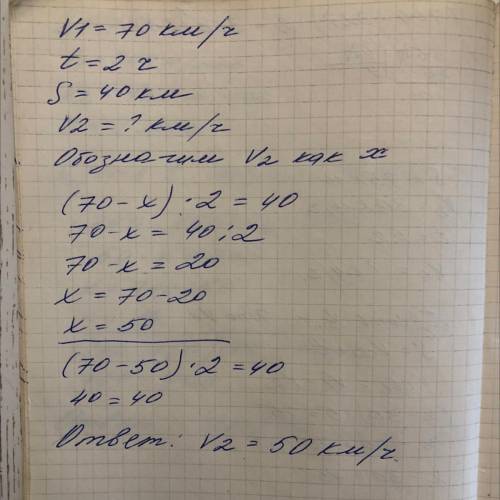 V1 = 70 км/ч
t = 2 ч
S = 40 км
V2 = ? км/ч
Обозначим V2 как x
(70 - x) · 2 = 40
70 - x = 40 : 2
70 - x = 20
x = 70 - 20
x = 50
(70 - 50) · 2 = 40
40 = 40
Ответ: V2 = 50 км/ч.